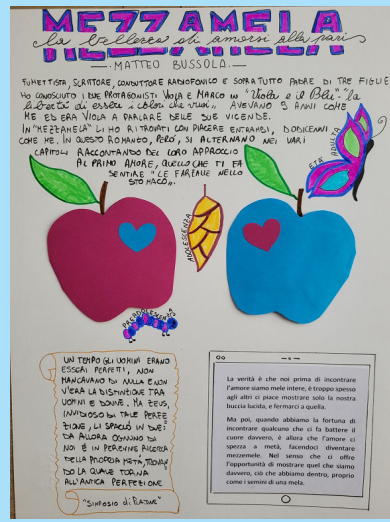 MEZZAMELA
la bellezza di amarsi alla pari
MATTEO BUSSOLA
FUMETTISTA, SCRITTORE, CONDUTTORE RADIOFONICO E SOPRATUTTO PADRE DI TRE FIGLIE
HO CONOSCIUTO I DUE PROTAGONISTI VIOLA E MARCO IN "Viola e il Blu" "la
libertà di essere i colori che vuoi„ AVEVANO 9 ANNI COME
ME ED ERA VIOLA A PARLARE DELLE SUE VICENDE.
IN "MEZZAMELA" LI HO RITROVATI CON PIACERE ENTRAMBI, DODICENNI
COME ME. IN QUESTO ROMANZO, PERÒ, SI ALTERNANO NEI VARI
CAPITOLI RACCONTANDO DEL LORO APPROCCIO
AL PRIMO AMORE, QUELLO CHE TI FA
SENTIRE "LE FARFALLE NELLO
STOMACO„
ETÀ ADULTA
ADOLESCENZA
PREADOLESCENZA
UN TEMPO GLI UOMINI ERANO
ESSERI PERFETTI, NON
MANCAVANO DI NULLA E NON
V'ERA LA DISTINZIONE TRA
UOMINI E DONNE. MA ZEUS,
INVIDIOSO DI TALE PERFE
ZIONE, LI SPACCÒ IN DUE:
DA ALLORA OGNUNO DI
NOI È IN PERENNE RICERCA
DELLA PROPRIA METÀ, TROVAN
DO LA QUALE TORNA
ALL'ANTICA PERFEZIONE
"SIMPOSIO di PLATONE"
La verità è che noi prima di incontrare
l'amore siamo mele intere, è troppo spesso
agli altri ci piace mostrare solo la nostra
buccia lucida, e fermarci a quella.
Ma poi, quando abbiamo la fortuna di
incontrare qualcuno che ci fa battere il
cuore davvero, è allora che l'amore ci
spezza a metà, facendoci diventare
mezzemele. Nel senso che ci offre
l'opportunità di mostrare quel che siamo
davvero, ciò che abbiamo dentro, proprio
come i semini di una mela.